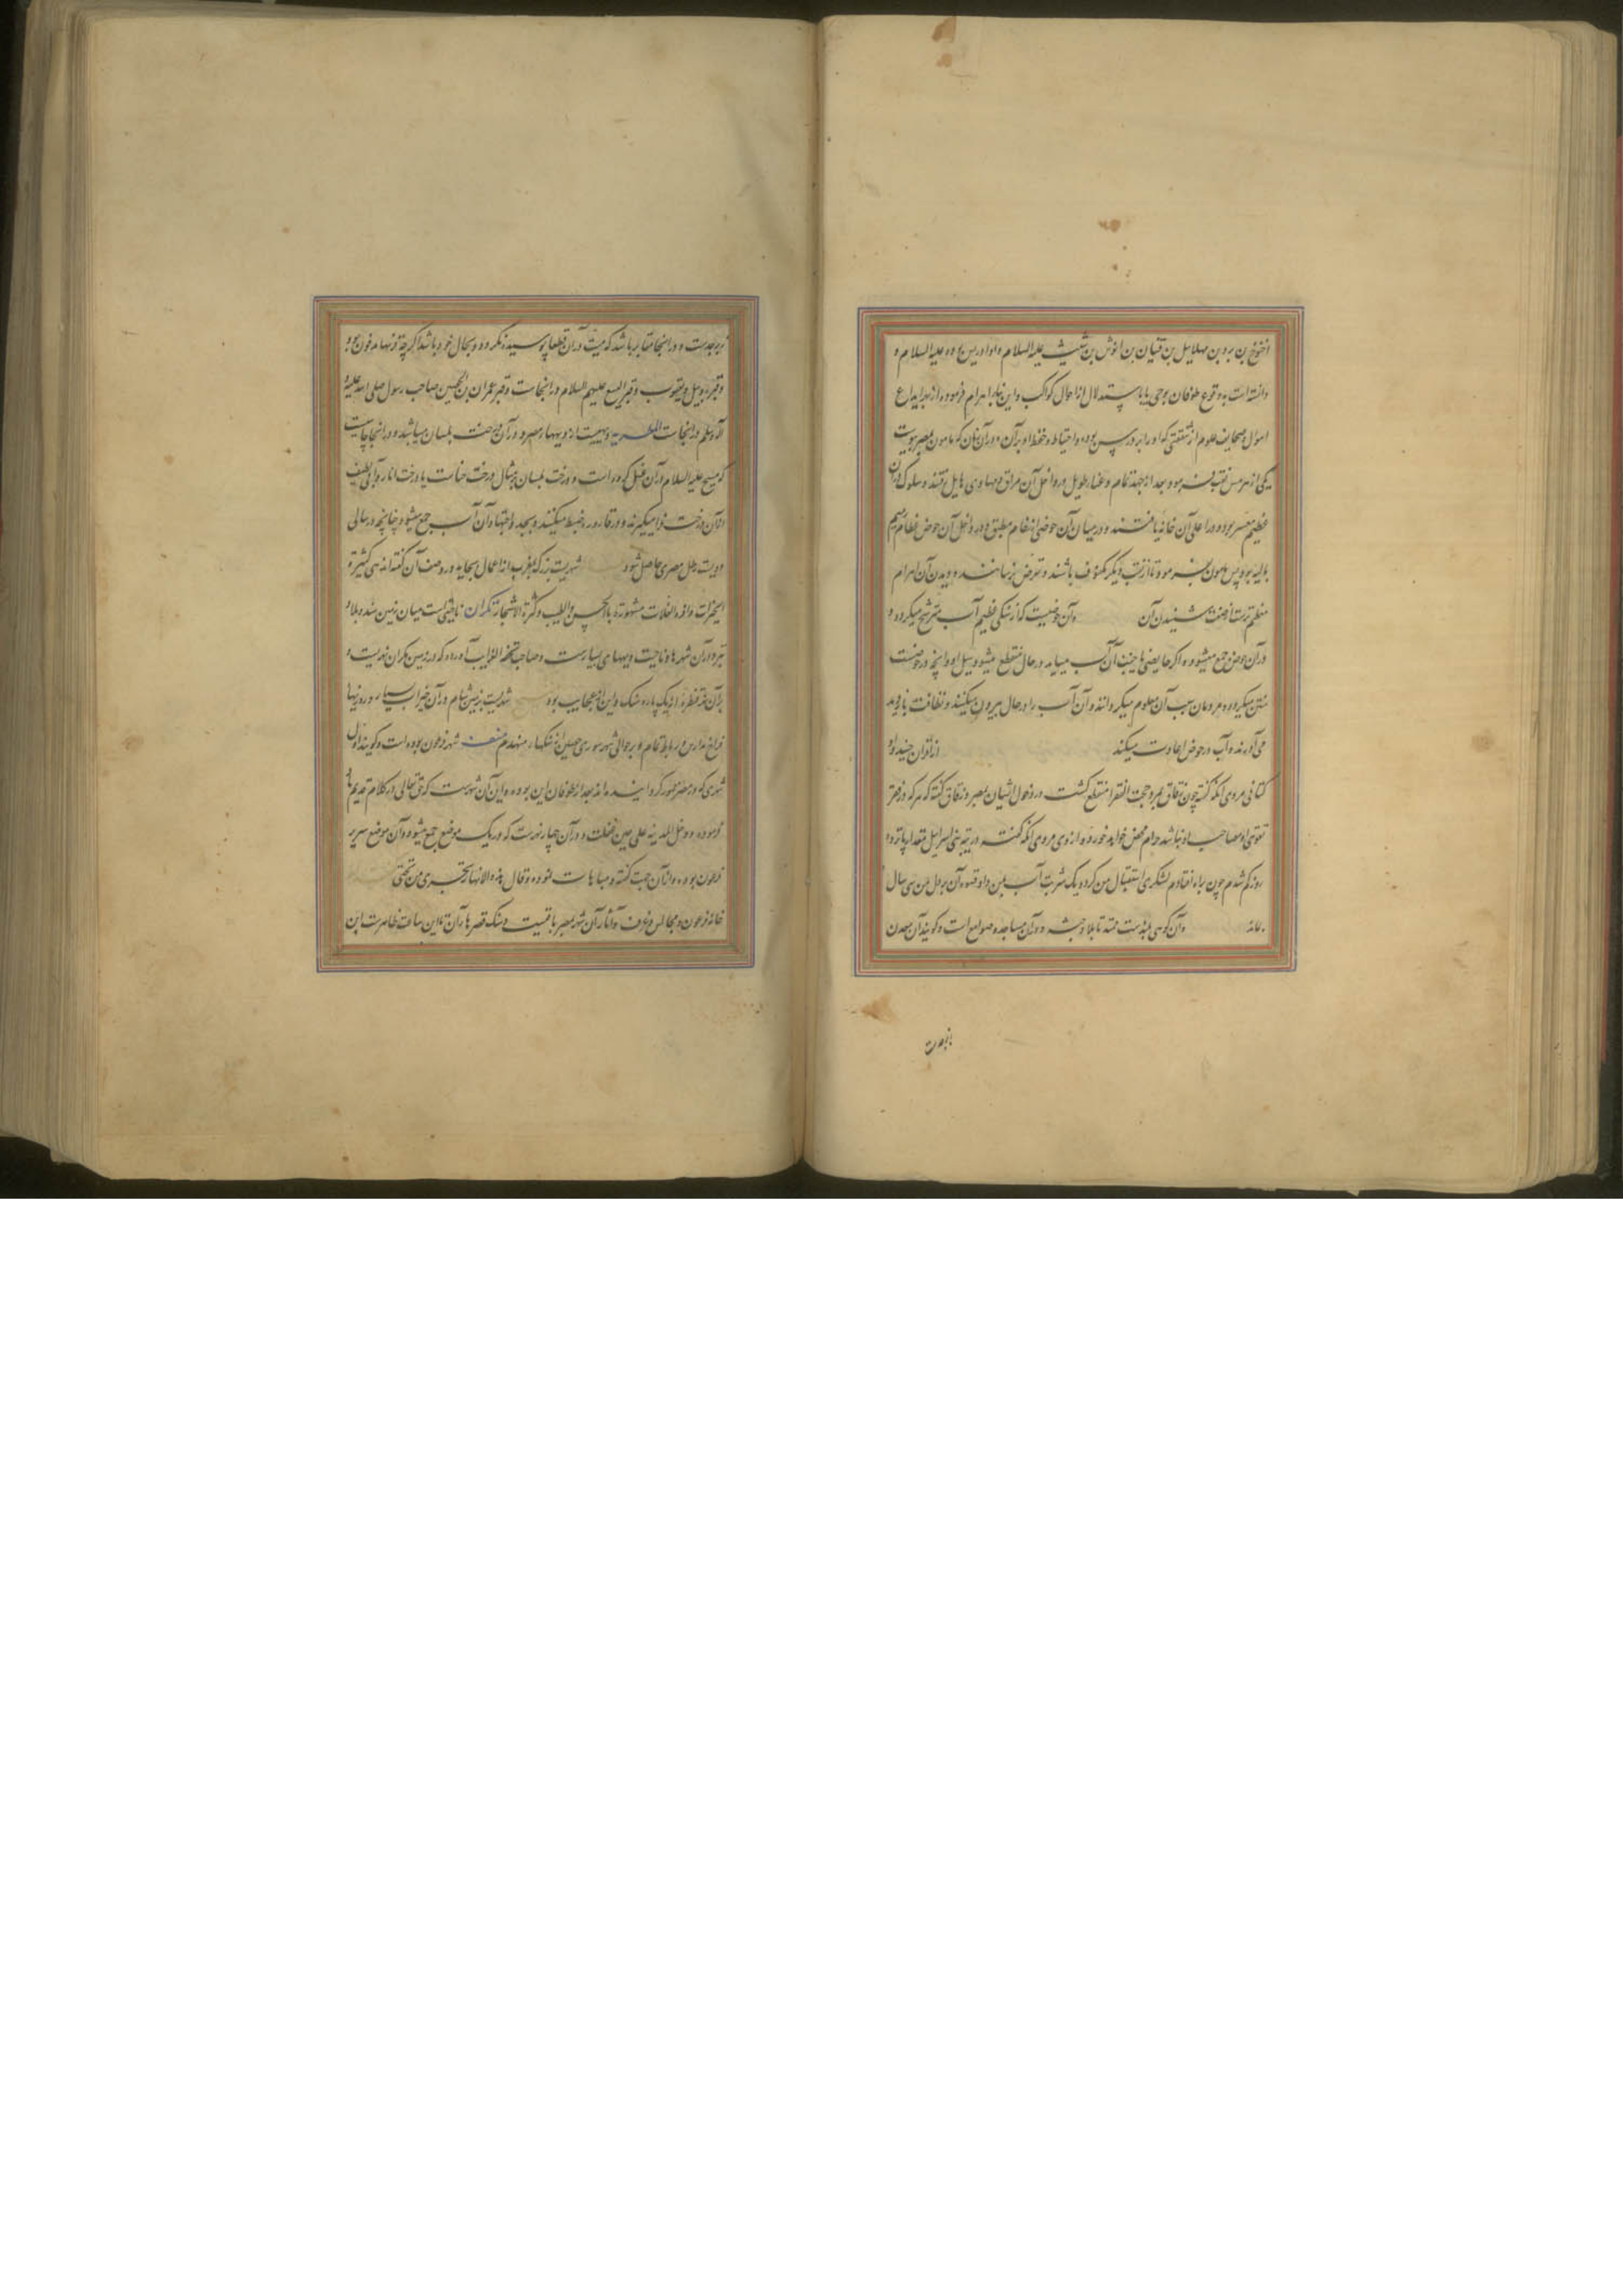 اخنوخ بن برد بن مهلاییل بن قینان بن انوش بن شیث علیه السلام و او ادریس بوده علیه السلام و
دانسته است بوقوع طوفان بوحی یا باستدلال از احوال کواکب و این بناء اهرام فرموده از برا ایداع
اموال و صحایف علوم از شفقتی که او را بر درس بوده و احتیاط و حفظ او بر آن و در آن زمان که مامون بمصر بوده
یکی از هرمین نقب فرمود و بعد از جهد تمام و عناء طویل در داخل آن مراقی و مهاوی هایل یافتند و سلوک در آن
عظیم عسر بود و در اعلی آن خانه یافتند و در میان آن حوضی از رخام مطبق و در داخل آن حوض عظام رمیم
بالیه بود پس مامون فرمود تا از نقب دیگر مکفوف باشند و تعرض نرسانند و دیدن آن اهرام
معظم ترست از صفت شنیدن آن و آن حوضیست که از سنگی عظیم آب مترشح میگردد و
در آن حوض جمع میشود و اگر حایضی یا جنب آن آب میساید در حال منقطع میشود سیل او و آنچه در حوضست
متن میگردد و مردمان سبب آن معلوم میگردانند و آن آب را در حال بیرون میکنند و نظافت بازدید
می آورند و آب در حوض اعادت میکند از اقران جنید او
کتانی مروی آنکه گفته چون زقاق بمرد حجت الفقرا منقطع گشت در دخول ایشان بمصر و زقاق گفته که هر که در فقر
تقوی او مصاحب او نباشد حرام محض خواهد خورد و از وی مروی آنکه گفت در تیه بنی اسرائیل مقدار پانزده
روز گم شدم چون براه افتادم لشکری استقبال من کرد و یک شربت آب بمن داد قسوه آن بر دل من سی سال
بماند و آن کوهی بلندست ممتد تا بلاد حبشه و در آن مساجد و صوامع است و گویند آن معدن
زبرجدست و در آنجا مقابر باشد که میت در آن قطعا پوسیده نگردد و بحال خود باشد اگرچه قرنها مدفون بود
و قبر روبیل و یعقوب و قبر الیسع علیهم السلام در آنجاست و قبر عمران بن الحصین صاحب رسول صلی الله علیه و
آله و سلم در آنجاست المطریه دهیست از دیهها مصر و در آن درخت بلسان میباشد و در آنجا چاهیست
که مسیح علیه السلام در آن غسل کرده است و درخت بلسان بمثال درخت حناست یا درخت انار و آبی لطیف
از آن درخت فرا میگیرند و در قاروره ضبط میکنند و بجد و اجتهاد آن آب جمع میشود چنانچه در سالی
دویست رطل مصری حاصل شود شهریست بزرگ بمغرب از اعمال بجایه در وصف آن گفته‌اند هی کثیرة
الخیرات وافرة الغلات مشهورة بالحسن و الطیب و کثرة الاشجار مکران ناحیتی است میان زمین سند و بلاد
تیز و در آن شهرها و ناحیت و دیههای بسیارست و صاحب تحفه الغرایب آورده که در زمین مکران نهریست و
بر آن نهر قنطره از یک پاره سنگ و این از عجایب بود شهریست بزمین شام و در آن خیرات بسیار و روزیها
فراخ و مدارس و رباطها تمام و بر حوالی شهر سوری حصین از سنگها منهدم منف شهر فرعون بوده است و گویند اول
شهری که در مصر ظهور کرد اینست بعد از طوفان این بوده و این آن شهرست که حق تعالی در کلام قدیم یاد
فرموده و دخل المدینه علی حین غفلت و در آن چهار نهرست که در یک موضع جمع میشود و آن موضع سریر
فرعون بوده و از آن جهت گفته و مباهات نموده و قال هذه الانهار تجری من تحتی
خانه فرعون و مجالس و غرف و آثار آن شهر بمصر باقیست و سنگ قصرها آن تا این ساعت ظاهرست ابن